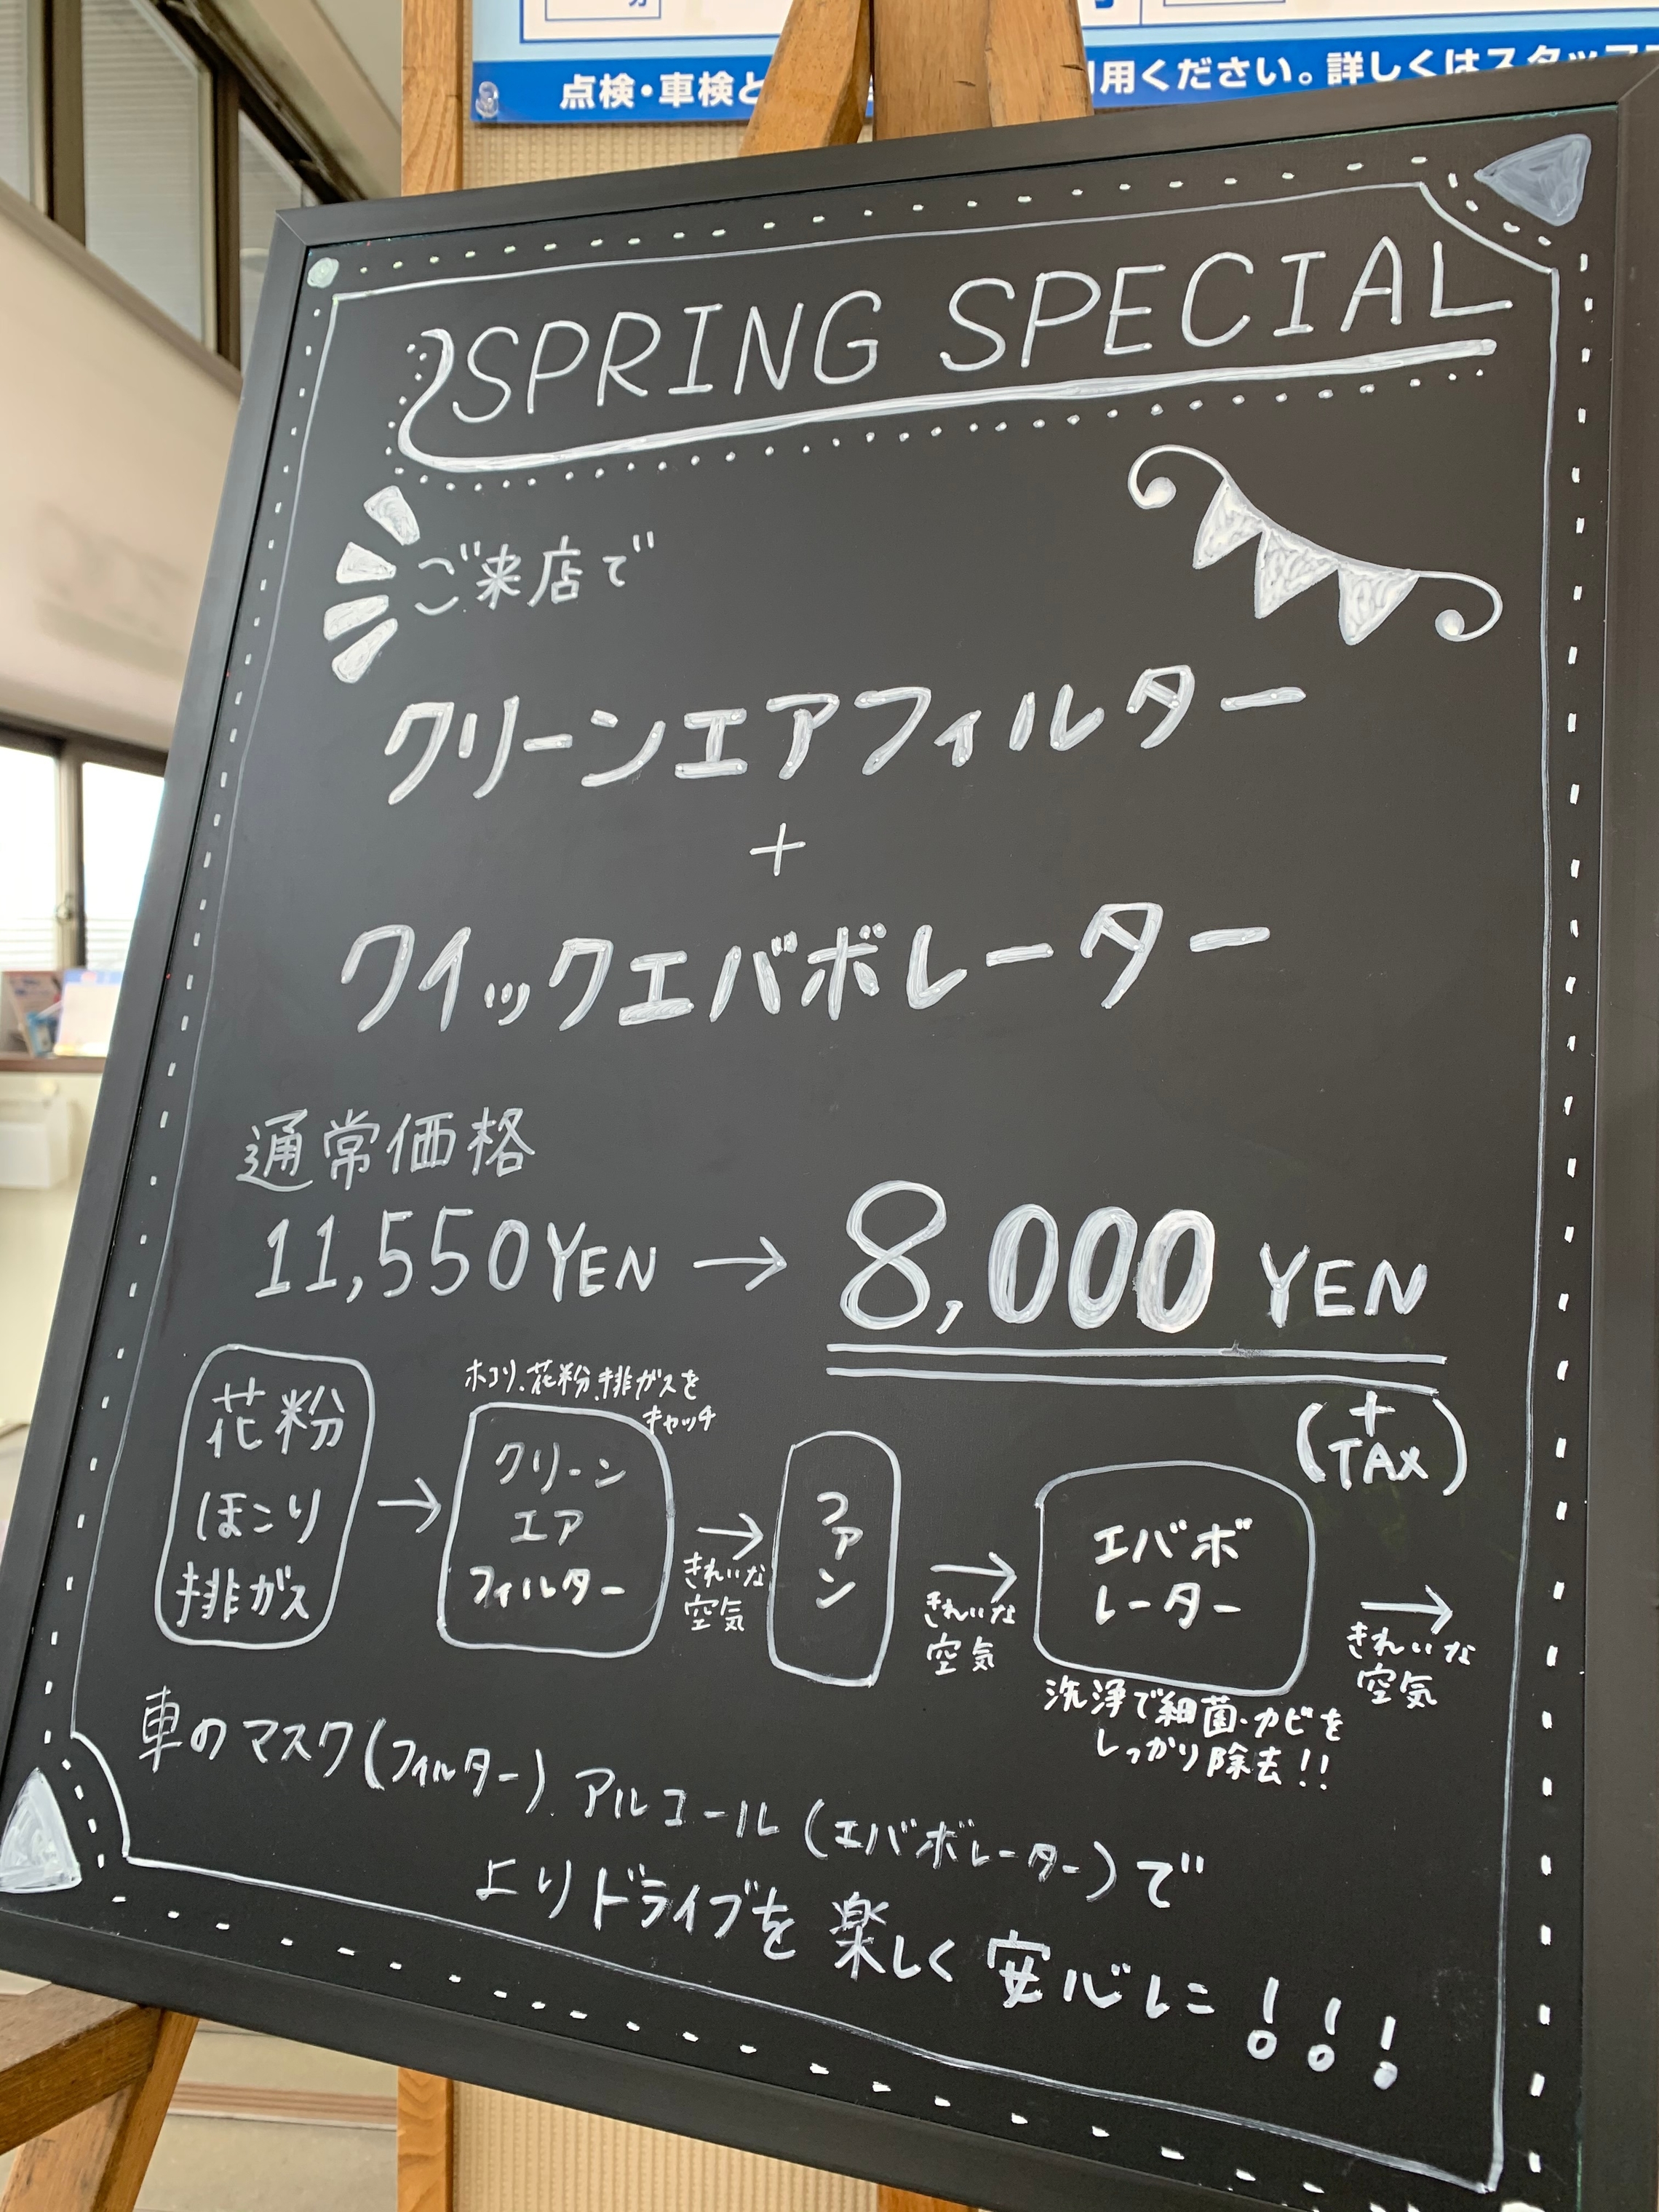 点検・車検と
用ください。詳しくはスタッフ
SPRING SPECIAL
ご来店で
クリーンエアフィルター
+
クイックエバポレーター
通常価格
11,550 YEN → 8,000 YEN
(+TAX)
花粉
ほこり
排ガス
→
ホコリ、花粉、排ガスを
キャッチ
クリーン
エア
フィルター
→
きれいな
空気
ファン
→
きれいな
空気
エバポ
レーター
洗浄で細菌・カビを
しっかり除去!!
→
きれいな
空気
車のマスク(フィルター)、アルコール(エバポレーター)で
よりドライブを楽しく安心に!!!